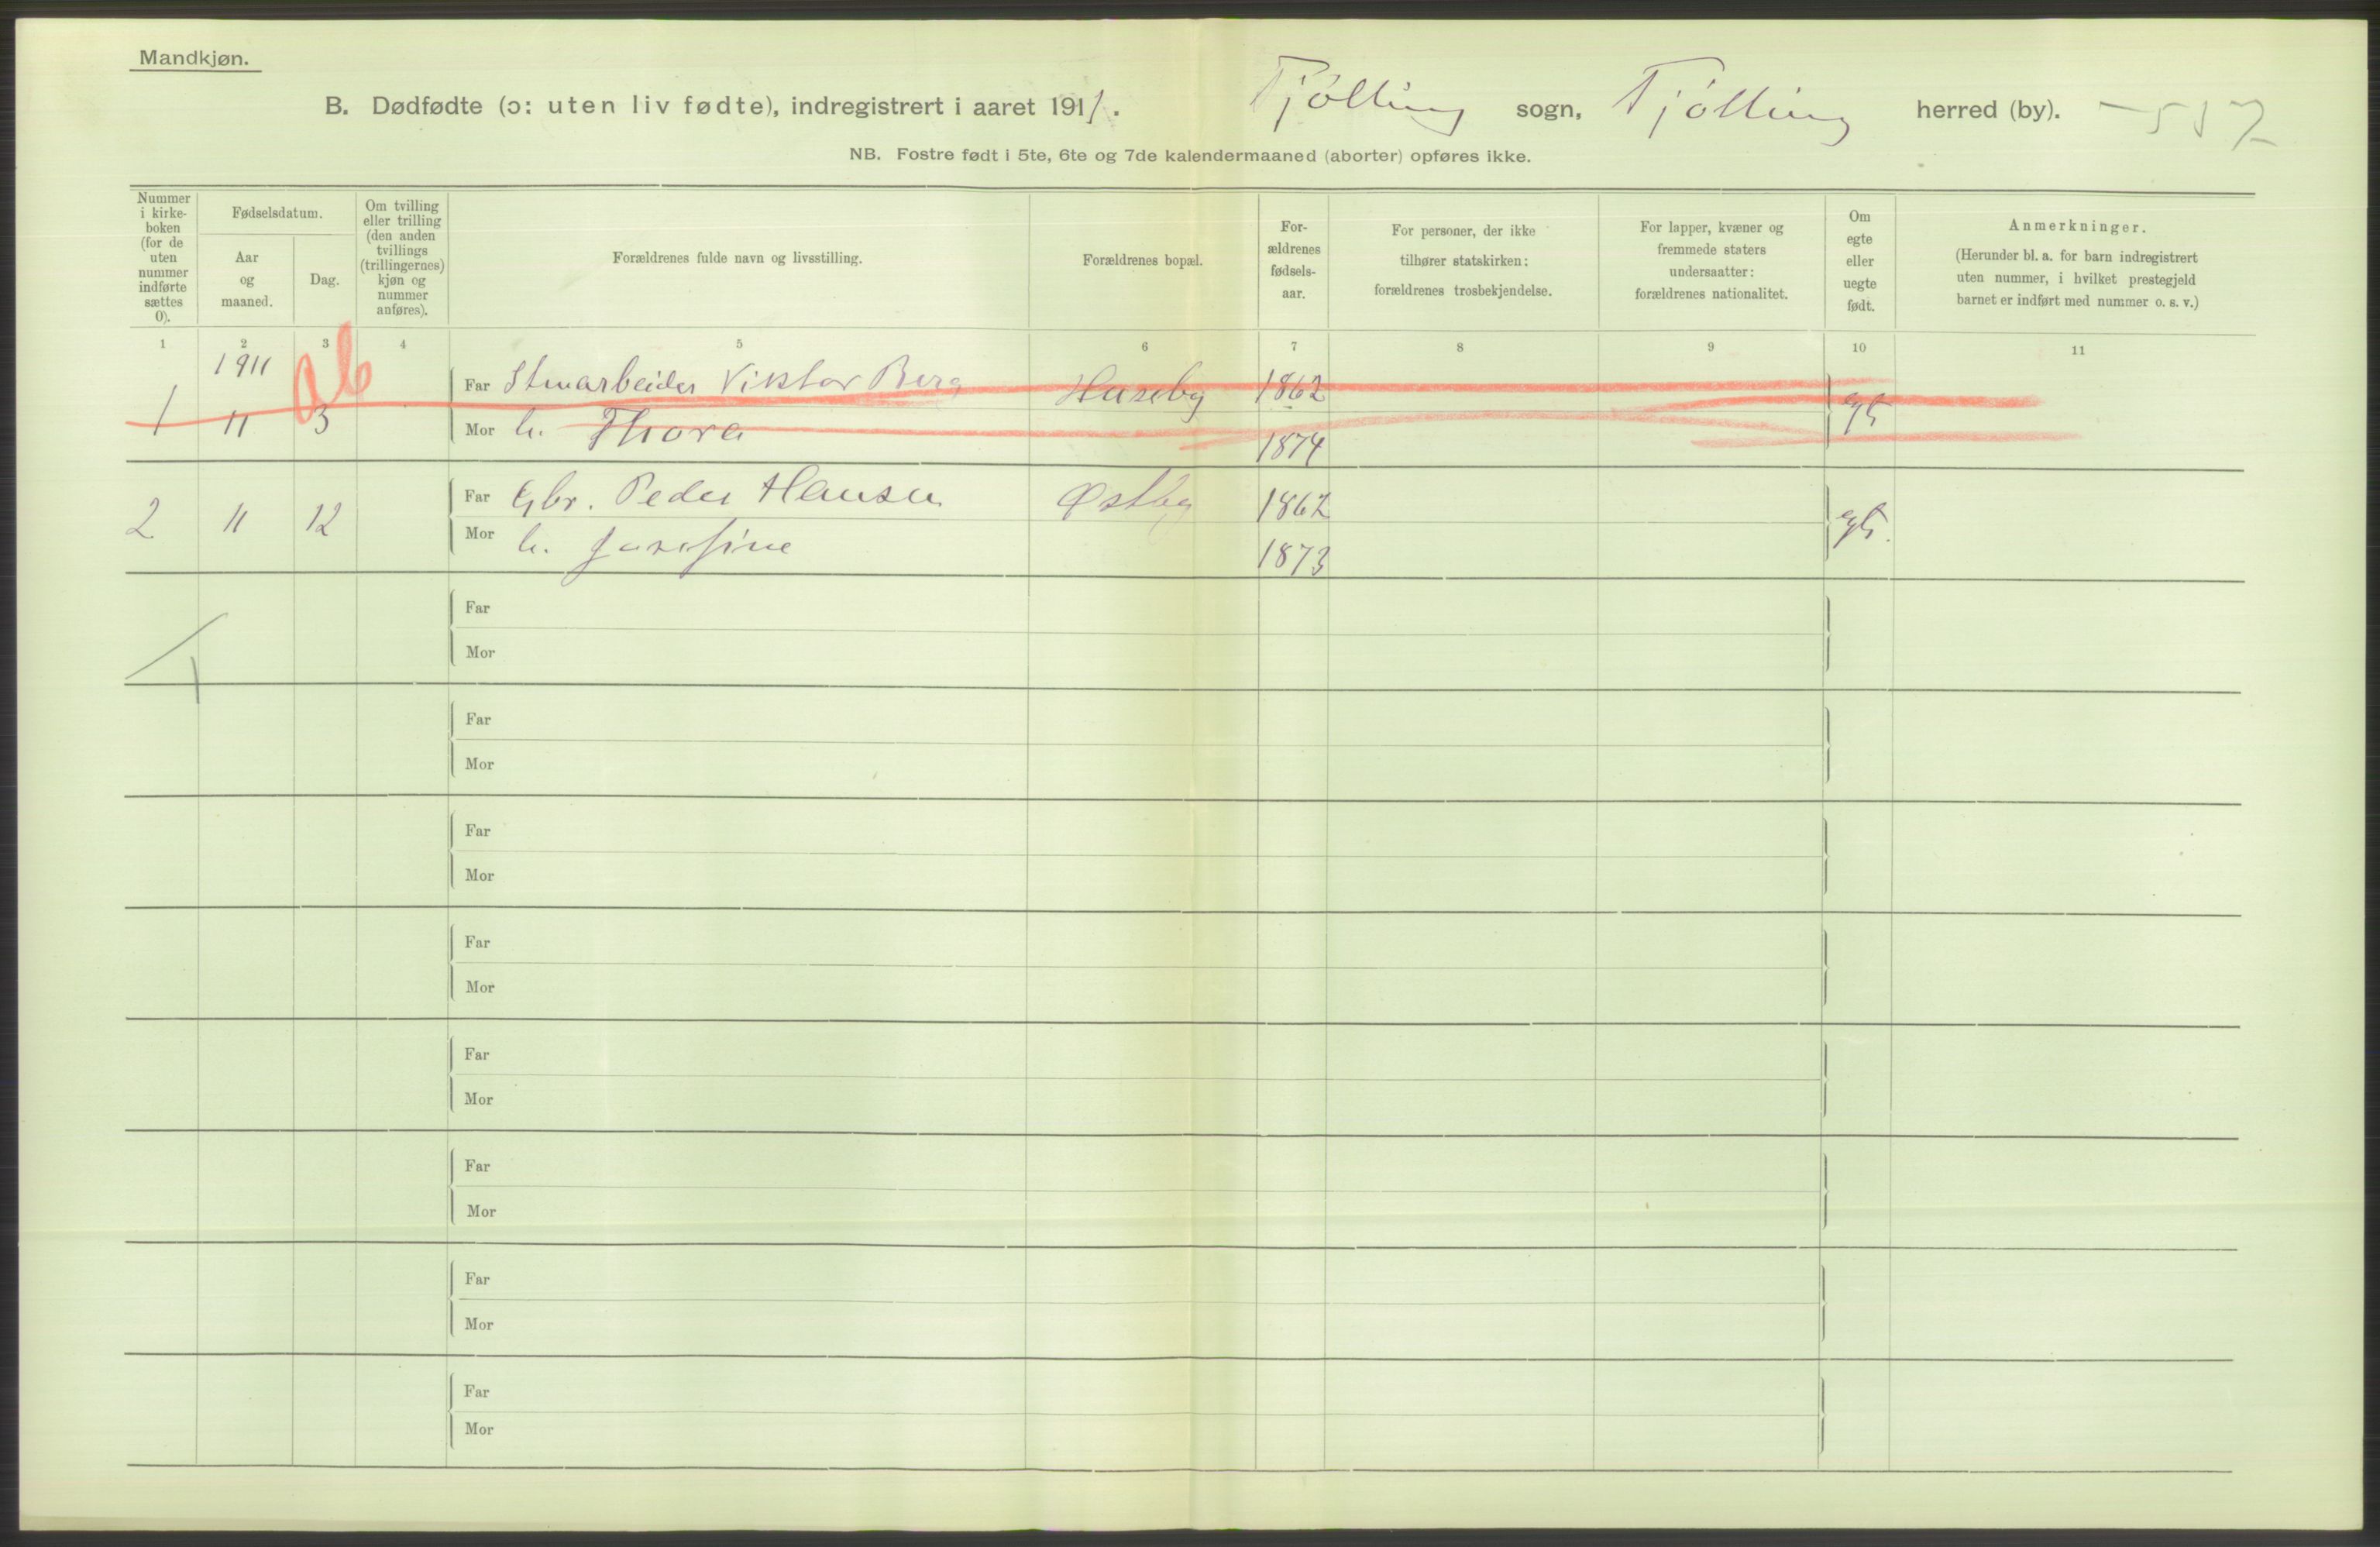 Mandkjøn.
B. Dødfødte (ɔ: uten liv fødte), indregistrert i aaret 1911. Tjölling sogn, Tjölling herred (by). – 557
NB. Fostre født i 5te, 6te og 7de kalendermaaned (aborter) opføres ikke.
Nummer
i kirke-
boken
(for de
uten
nummer
indførte
sættes
0).
Fødselsdatum.
Aar
og
maaned.
Dag.
Om tvilling
eller trilling
(den anden
tvillings
(trillingernes)
kjøn og
nummer
anføres).
Forældrenes fulde navn og livsstilling.
Forældrenes bopæl.
For-
ældrenes
fødsels-
aar.
For personer, der ikke
tilhører statskirken:
forældrenes trosbekjendelse.
For lapper, kvæner og
fremmede staters
undersaatter:
forældrenes nationalitet.
Om
egte
eller
uegte
født.
Anmerkninger.
(Herunder bl. a. for barn indregistrert
uten nummer, i hvilket prestegjeld
barnet er indført med nummer o. s. v.)
1 2 3 4 5 6 7 8 9 10 11
1911 ab
Far Stenarbeider Viktor Berg Huseby 1862
1 11 3 egte
Mor h. Thora 1874
Far Gbr. Peder Hansen Østby 1862
2 11 12 egte
Mor h. Josefine 1873
Far
Mor
Far
Mor
Far
Mor
Far
Mor
Far
Mor
Far
Mor
Far
Mor
Far
Mor